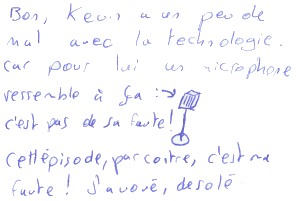 Bon, Kevin a un peu de
mal avec la technologie.
car pour lui un microphone
ressemble à ça :
c'est pas de sa faute !
Cet épisode, par contre, c'est ma
faute ! J'avoue, désolé